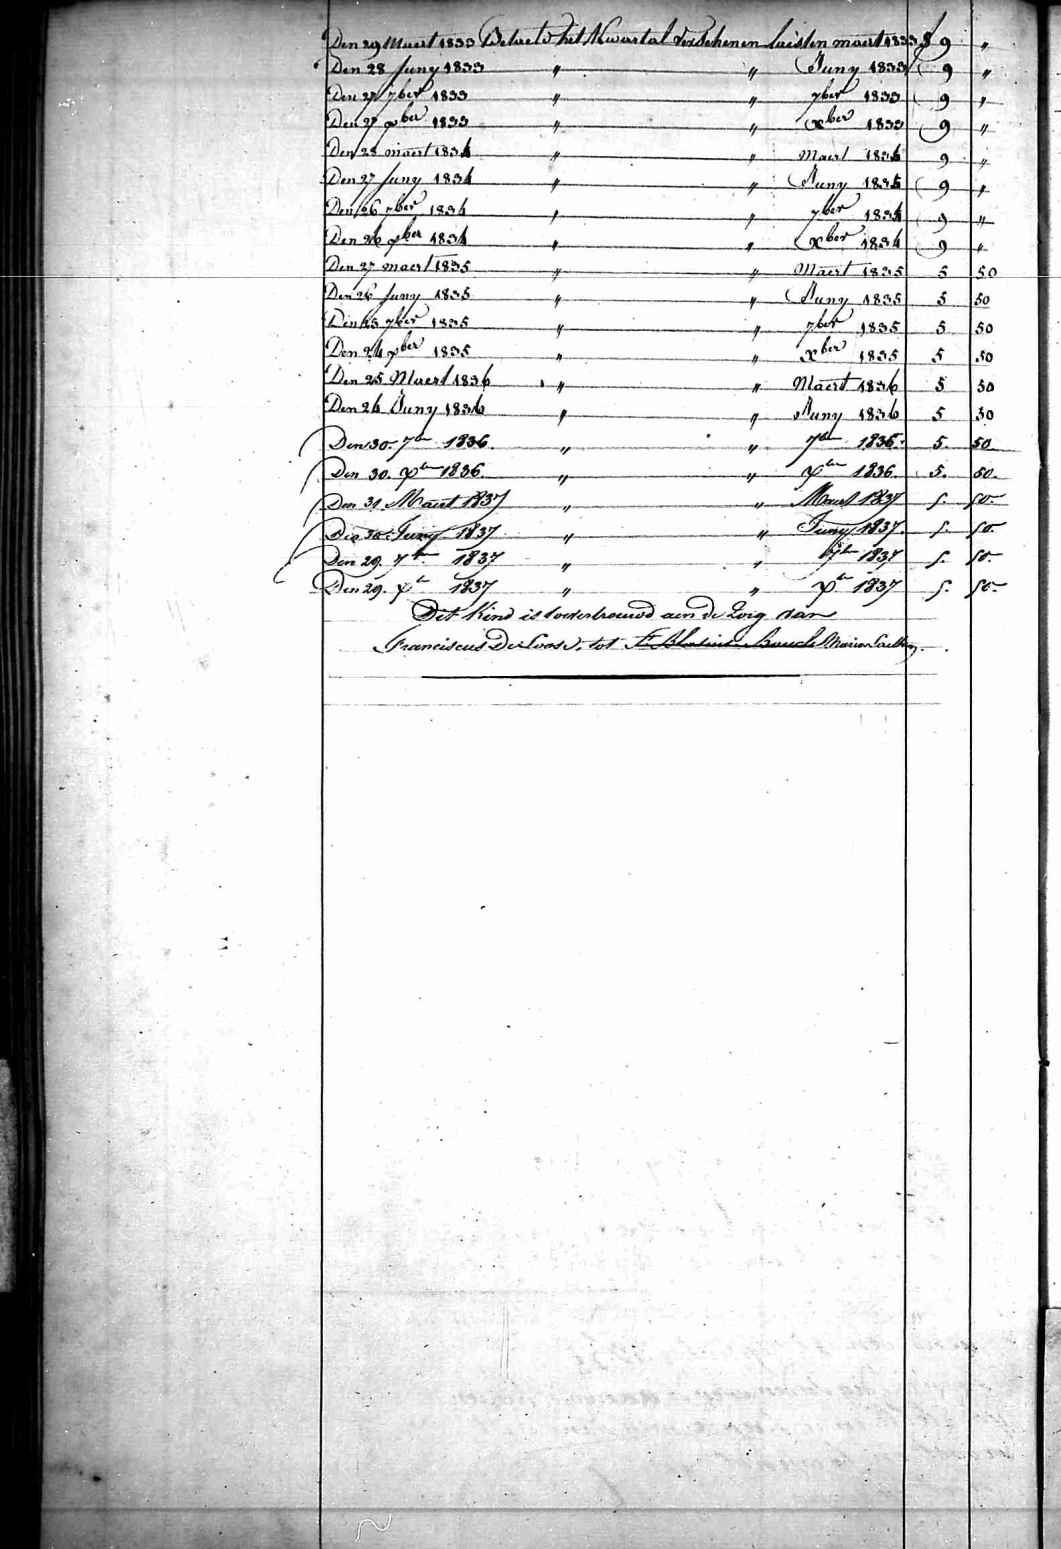 Den 29 Maert 1833 Betaeld het Kwartal verschenen laisten maert 1833 f 9 "
Den 28 Juny 1833 " " Juny 1833 9 "
Den 27 7ber 1833 " " 7ber 1833 9 "
Den 27 xber 1833 " " xber 1833 9 "
Den 28 maert 1834 " " Maert 1834 9 "
Den 27 Juny 1834 " " Juny 1834 9 "
Den 26 7ber 1834 " " 7ber 1834 9 "
Den 26 xber 1834 " " xber 1834 9 "
Den 27 maert 1835 " " Maert 1835 5 50
Den 26 Juny 1835 " " Juny 1835 5 50
Den 25 7ber 1835 " " 7ber 1835 5 50
Den 24 xber 1835 " " xber 1835 5 50
Den 25 Maert 1836 " " Maert 1836 5 50
Den 26 Juny 1836 " " Juny 1836 5 50
Den 30. 7ber 1836. " " 7ber 1836. 5. 50.
Den 30. xber 1836. " " xber 1836. 5. 50.
Den 31 Maert 1837 " " Maert 1837 5. 50.
Den 30 Juny 1837 " " Juny 1837. 5. 50.
Den 29. 7br 1837 " " 7br 1837 5. 50.
Den 29. xbr 1837 " " xbr 1837 5. 50.
Dit Kind is toevertrouwd aen de Zorg van
Franciscus De Loose, tot St Blasius Boucle